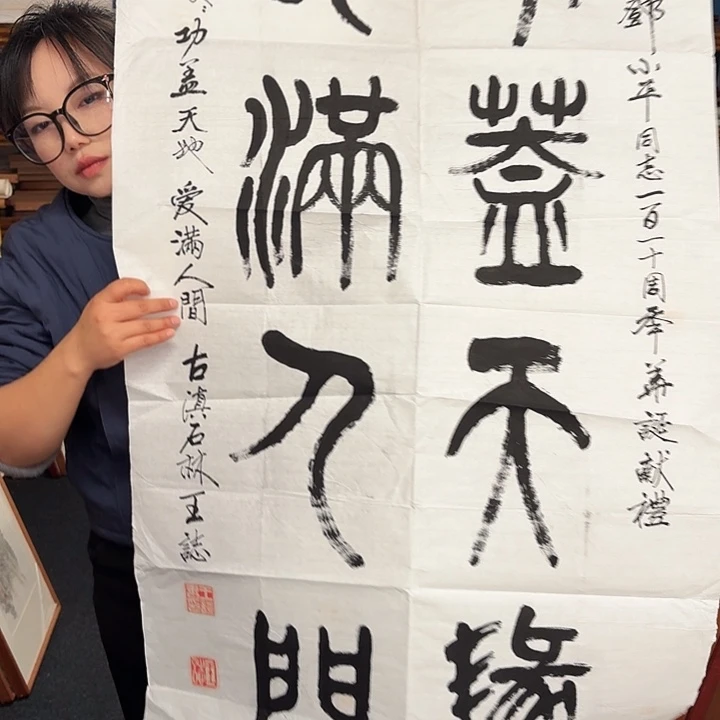 鄧小平同志一百一十周年華誕献禮
蓋天
滿人
功盖天地 愛滿人間 古滇石林王誌